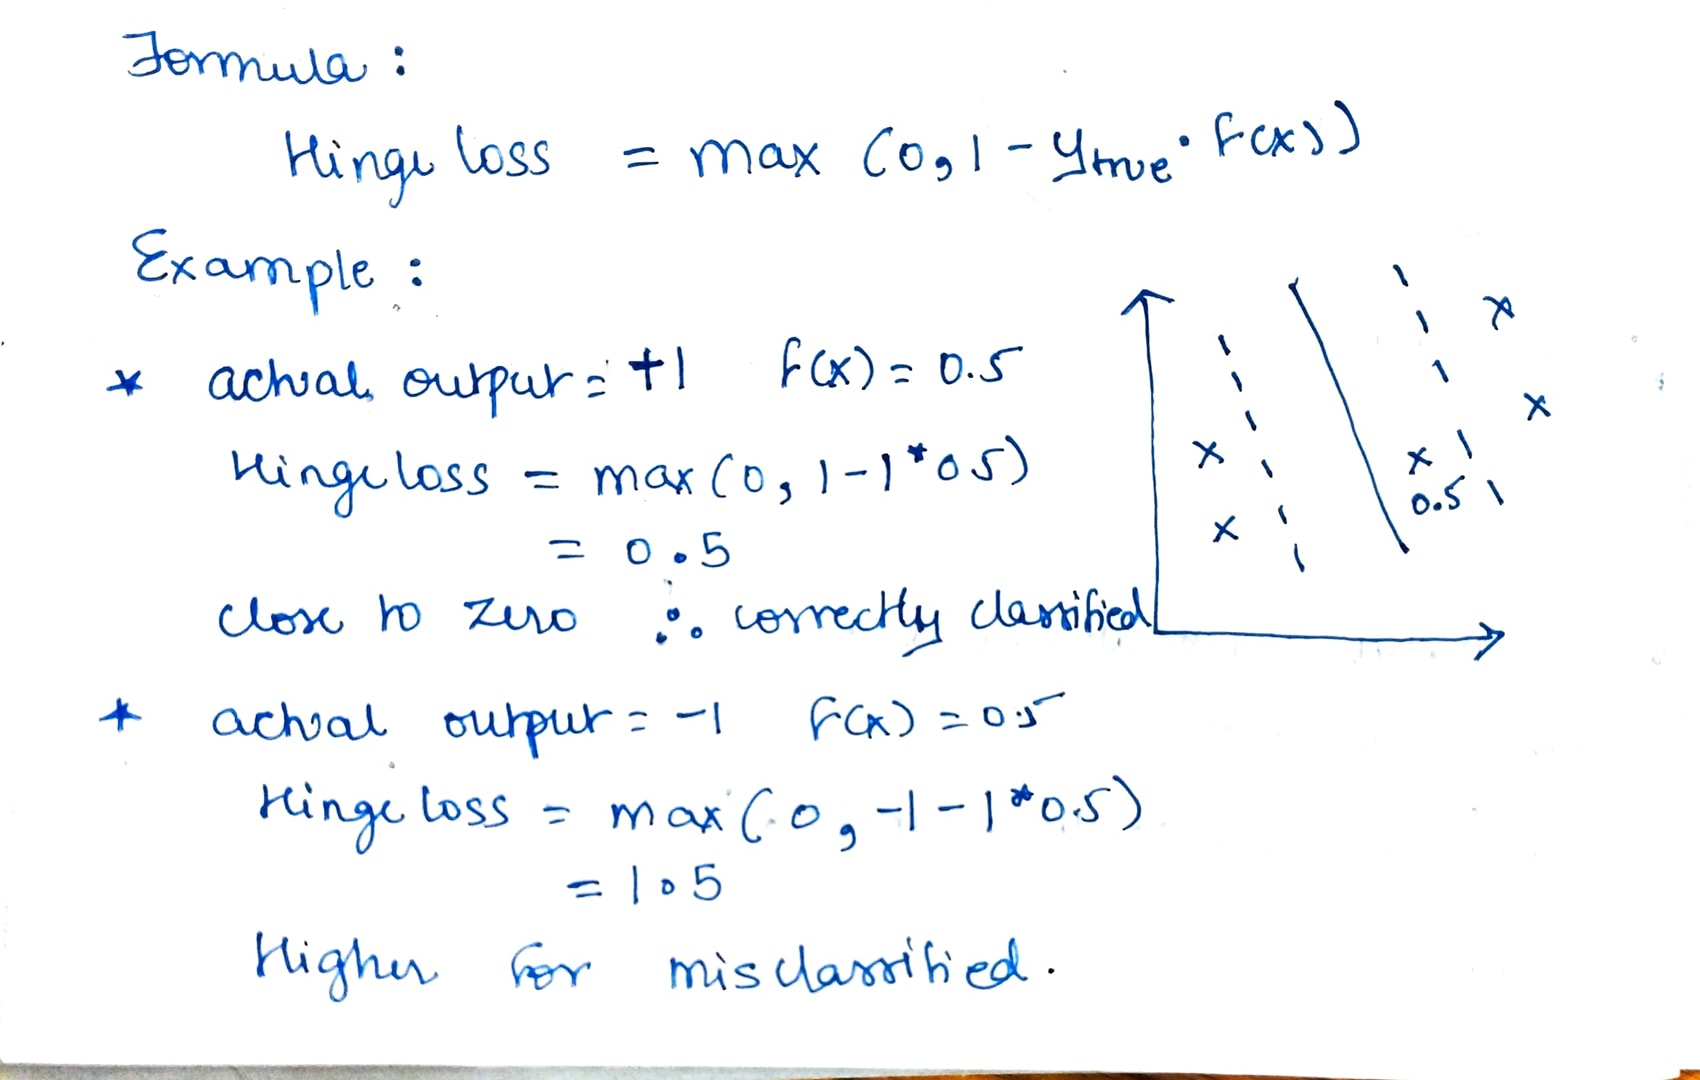 Formula :
Hinge loss = max (0, 1 - ytrue · f(x))
Example :
* actual output = +1 f(x) = 0.5
Hinge loss = max (0, 1 - 1 * 05)
= 0.5
close to zero ∴ correctly classified
* actual output = -1 f(x) = 0.5
Hinge loss = max (0, -1 - 1 * 0.5)
= 1.5
Higher for misclassified.
x
x
x
x
x
0.5